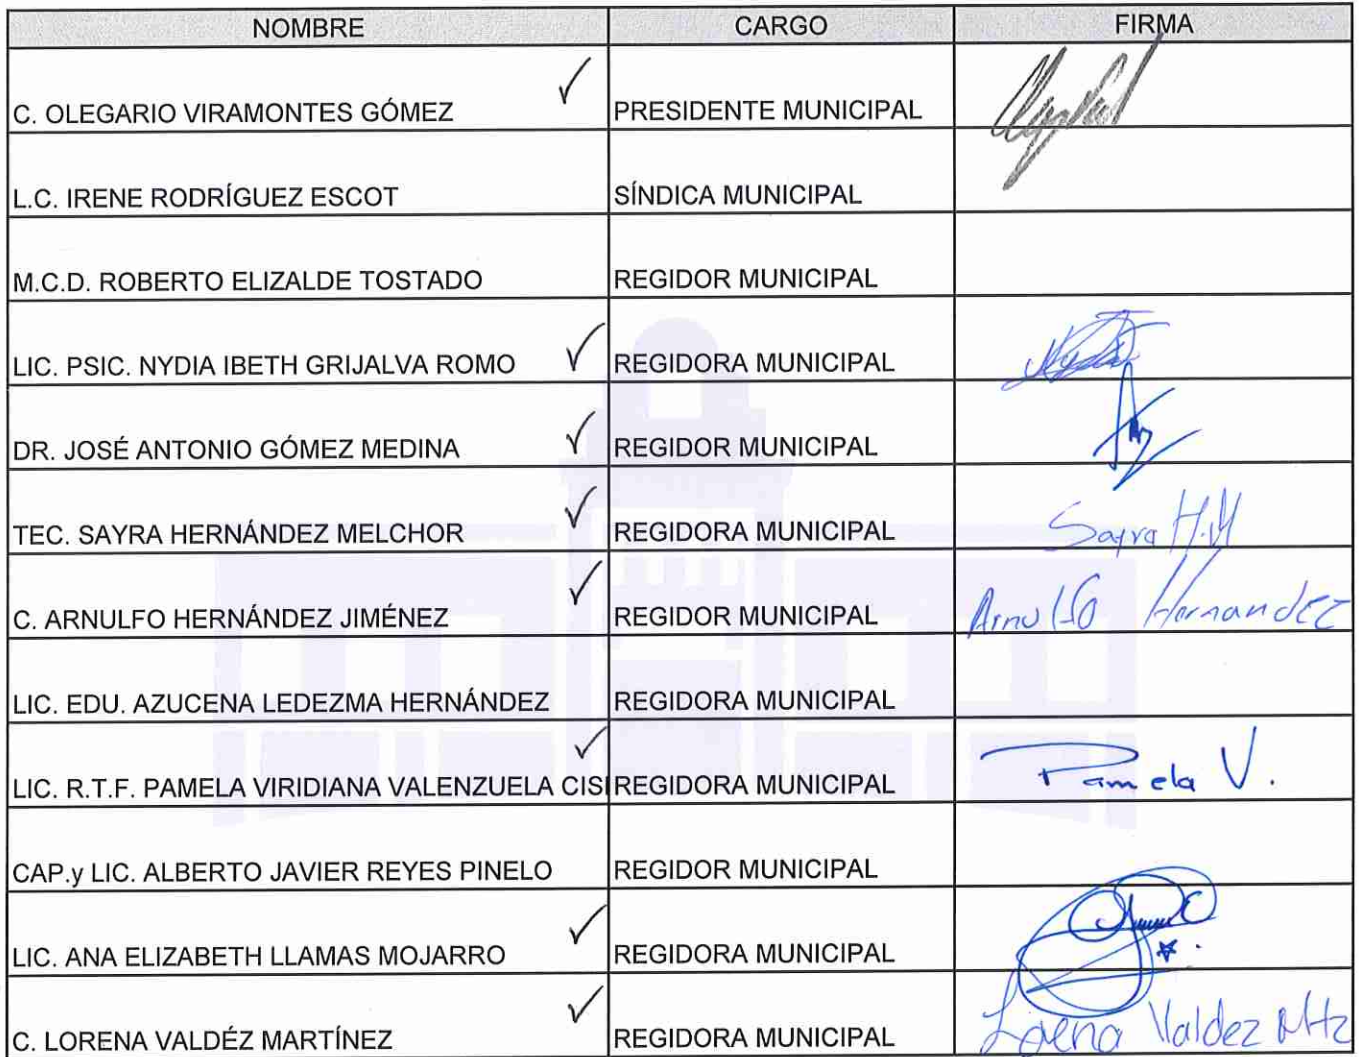 NOMBRE CARGO FIRMA
C. OLEGARIO VIRAMONTES GÓMEZ PRESIDENTE MUNICIPAL
L.C. IRENE RODRÍGUEZ ESCOT SÍNDICA MUNICIPAL
M.C.D. ROBERTO ELIZALDE TOSTADO REGIDOR MUNICIPAL
LIC. PSIC. NYDIA IBETH GRIJALVA ROMO REGIDORA MUNICIPAL
DR. JOSÉ ANTONIO GÓMEZ MEDINA REGIDOR MUNICIPAL
TEC. SAYRA HERNÁNDEZ MELCHOR REGIDORA MUNICIPAL Sayra H.M
C. ARNULFO HERNÁNDEZ JIMÉNEZ REGIDOR MUNICIPAL Arnulfo Hernandez
LIC. EDU. AZUCENA LEDEZMA HERNÁNDEZ REGIDORA MUNICIPAL
LIC. R.T.F. PAMELA VIRIDIANA VALENZUELA CISI REGIDORA MUNICIPAL Pamela V.
CAP.y LIC. ALBERTO JAVIER REYES PINELO REGIDOR MUNICIPAL
LIC. ANA ELIZABETH LLAMAS MOJARRO REGIDORA MUNICIPAL
C. LORENA VALDÉZ MARTÍNEZ REGIDORA MUNICIPAL Lorena Valdez Mtz